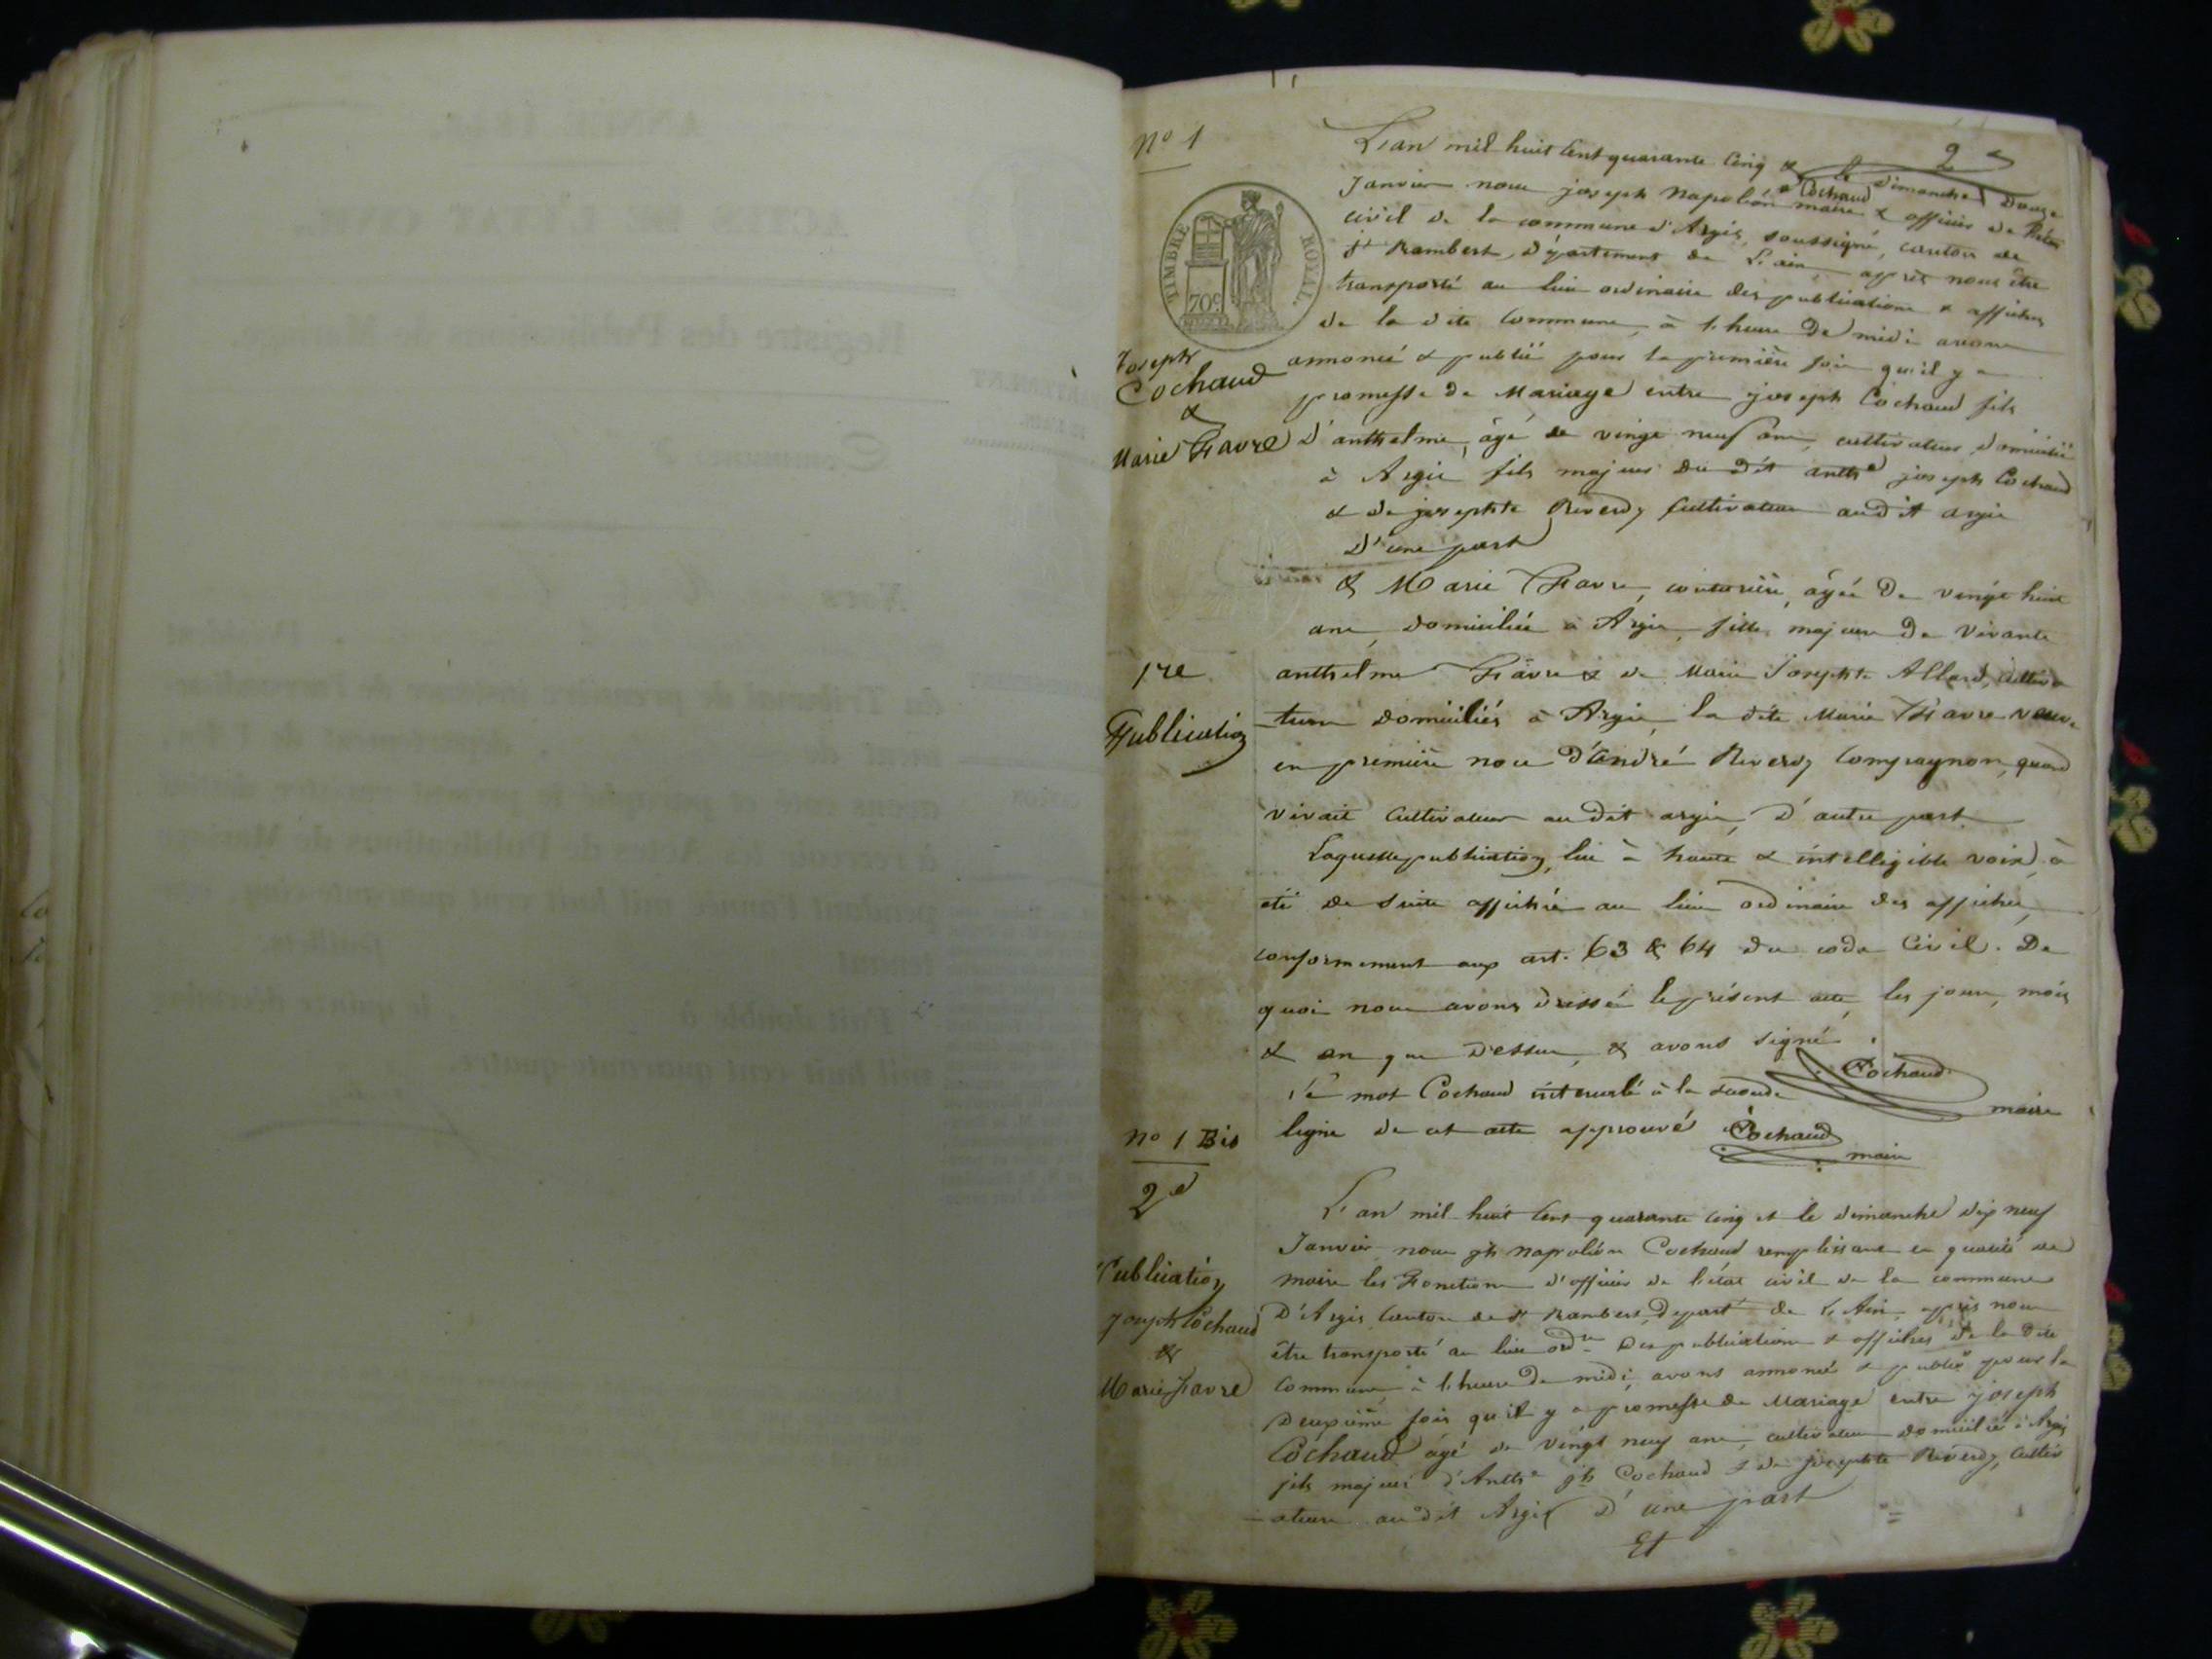 N° 1
2
L'an mil huit cent quarante cinq & le dimanche douze
Janvier nous joseph Napoléon Cochaud maire & officier de l'état
civil de la commune d'Argis, soussigné, canton de
St Rambert, département de L'ain, après nous être
transporté au lieu ordinaire des publications & affiches
de la dite commune, à l'heure de midi avons
annoncé & publié pour la première fois qu'il y a
promesse de Mariage entre joseph Cochaud fils
d'anthelme, âgé de vingt neuf ans, cultivateur domicilié
à Argis fils majeur du dit anthe joseph Cochaud
& de josephte Reverdy Cultivateurs audit argis
D'une part
& Marie Favre, couturière, âgée de vingt huit
ans, domiciliée à Argis, fille majeure de vivants
anthelme Favre & de Marie Josephte Allard, cultiva
teurs domiciliés à Argis, la dite Marie Favre veuve
en première noce d'André Reverdy Compagnon, quand
vivait Cultivateur au dit argis, d'autre part
Laquelle publication, lue à haute & intelligible voix, à
été de suite affichée au lieu ordinaire des affiches,
conformement aux art. 63 & 64 du code Civil. De
quoi nous avons dressé le présent acte, les jour, mois
& an que dessus, & avons signé.
Cochaud
maire
Le mot Cochaud intercalé à la seconde
ligne de cet acte approuvé Cochaud
maire
TIMBRE ROYAL.
70c
Joseph
Cochaud
&
Marie Favre
1re
Publication
N° 1 Bis
2e
Publication
Joseph Cochaud
&
Marie Favre
L'an mil huit cent quarante cinq et le dimanche dix neuf
Janvier nous jh Napoléon Cochaud remplissant en qualité de
maire les Fonctions d'officier de l'état civil de la commune
D'Argis Canton de St Rambert, départt de L'Ain, après nous
être transporté au lieu ordre des publications & affiches de la dite
Commune, à l'heure de midi, avons annoncé & publié pour la
Deuxième fois qu'il y a promesse de Mariage entre joseph
Cochaud âgé de vingt neuf ans, cultivateur domicilié à Argis
fils majeur d'Anthe jh Cochaud & de josephte Reverdy, Cultiv
ateurs au dit Argis D'une part
Et